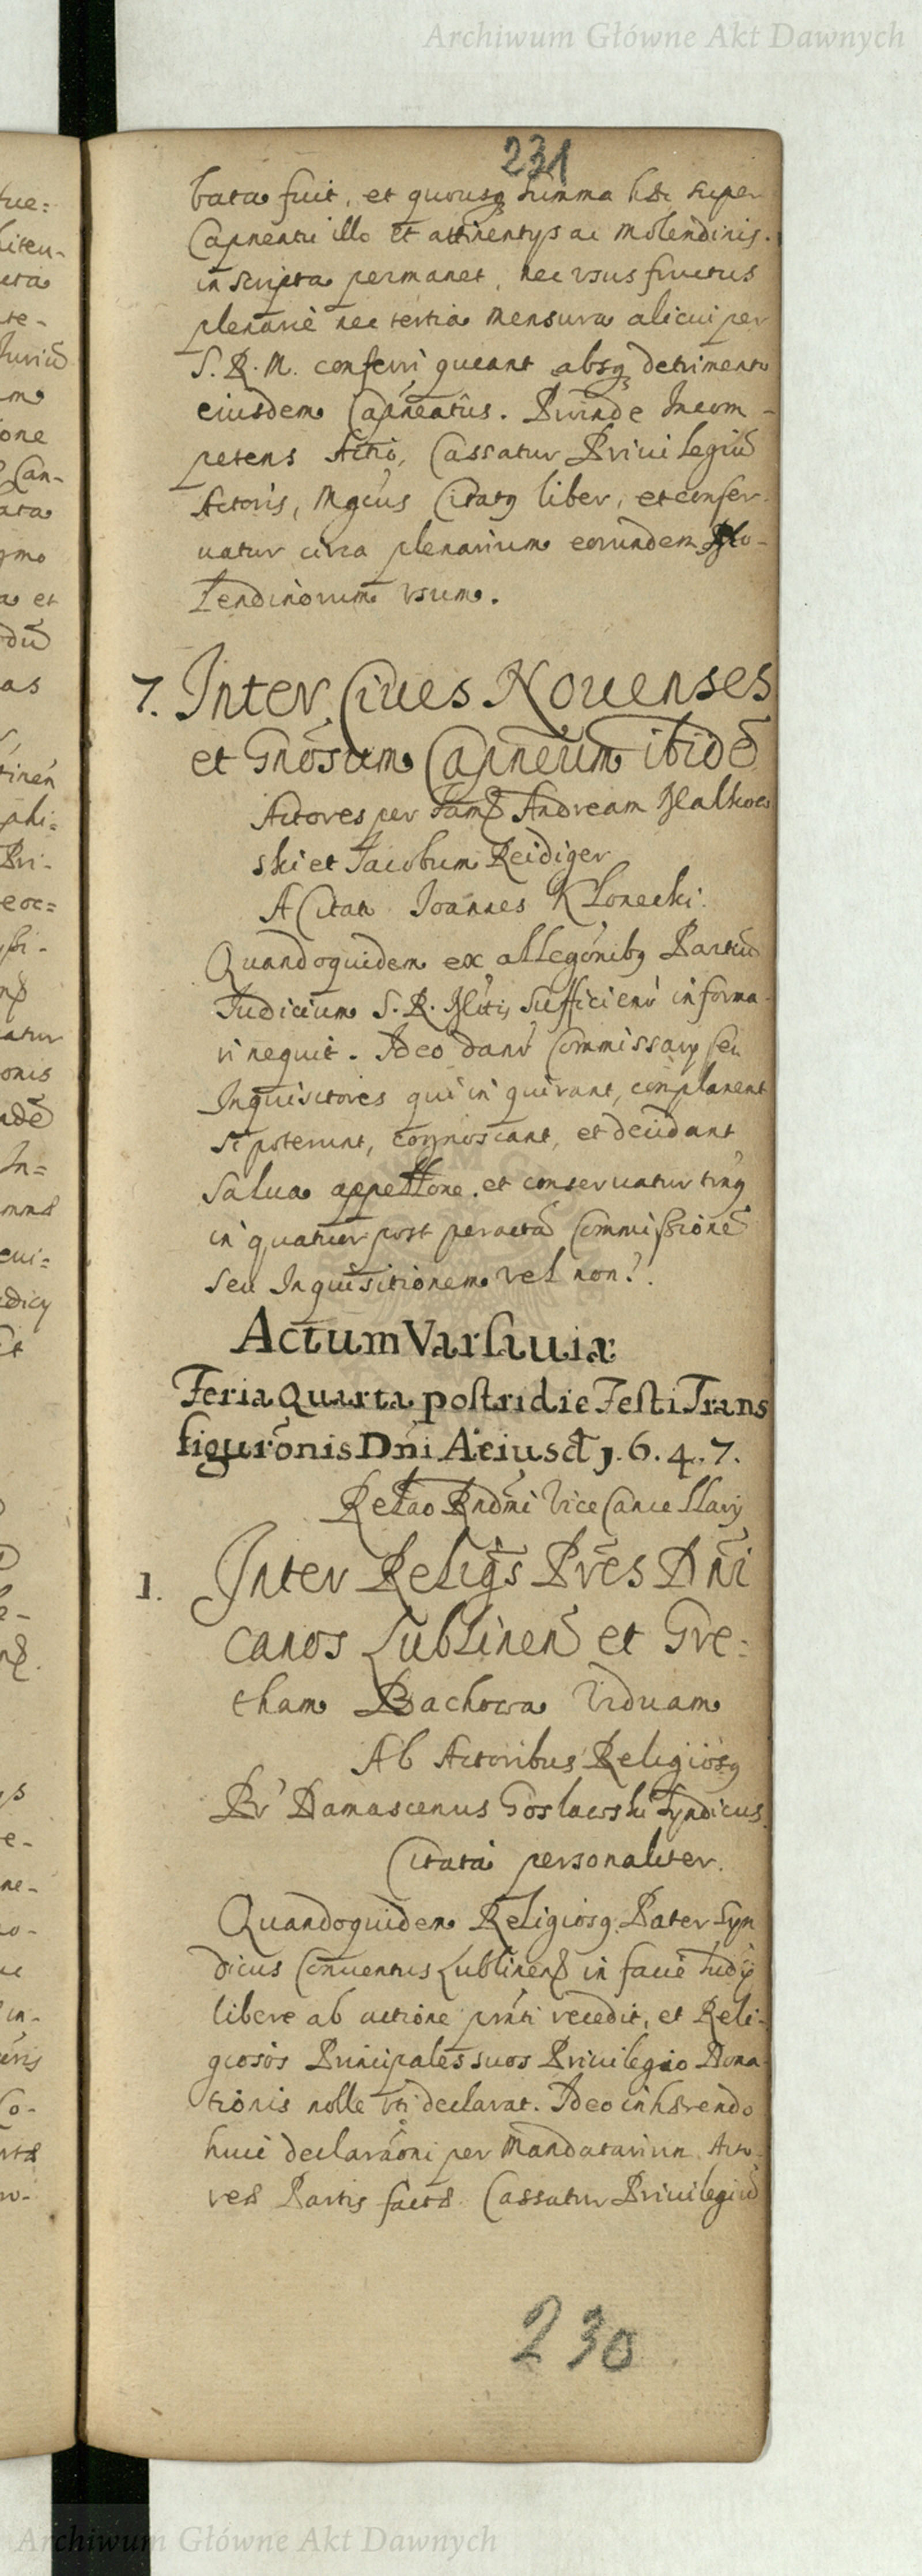 Archiwum Główne Akt Dawnych
231
bata fuit, et quousq summa hæc super
Capneatu illo et attinentys ac Molendinis
inscripta permanet, nec usus fructus
plenarie nec tertia mensura alicui per
S. R. M. conferri queant absq detrimento
eiusdem Capneatus. Proinde Incom-
petens Actio, Cassatur Privilegiū
Actoris, Mgcus Citatq liber, et conser-
uatur circa plenarium eorundem Mo-
lendinorum vsum.
7. Inter Ciues Nouenses
et Gnosum Capneum ibidē
Actores per Fam Andream Malkow
ski et Jacobum Reidiger
A Citati Joannes Klonecki.
Quandoquidem ex allegonibq Partiū
Judicium S. R. Mtis sufficienr informa-
ri nequit. Ideo danr Commissary seu
Inquisitores qui inquirant, complanent
si poterunt, cognoscant, et decidant
salua appellone. et conseruatur tmq
in quatuor post peractā Commissionē
seu Inquisitionem vel non?
Actum Varsauiæ
Feria Quarta postridie Festi Trans
figurōnis Dni A eiusd 1.6.4.7.
Relao Rndmi Vice Cancellary
1. Inter Religs Pres Dni
canos Lublinen et Gre:
tham Bachowa Viduam
Ab Actoribus Religiosq
Pr Damascenus Goslawski Syndicus
Citata personaliter.
Quandoquidem Religiosq Pater Syn
dicus Conuentus Lublinens in facie Judy
libere ab actione prnti recedit, et Reli-
giosos Principales suos Priuilegio Dona-
tionis nolle vti declarat. Ideo inhærendo
huic declaraoni per Mandatarium Acto-
reæ Partis factæ Cassatur Priuilegiū
230
Archiwum Główne Akt Dawnych